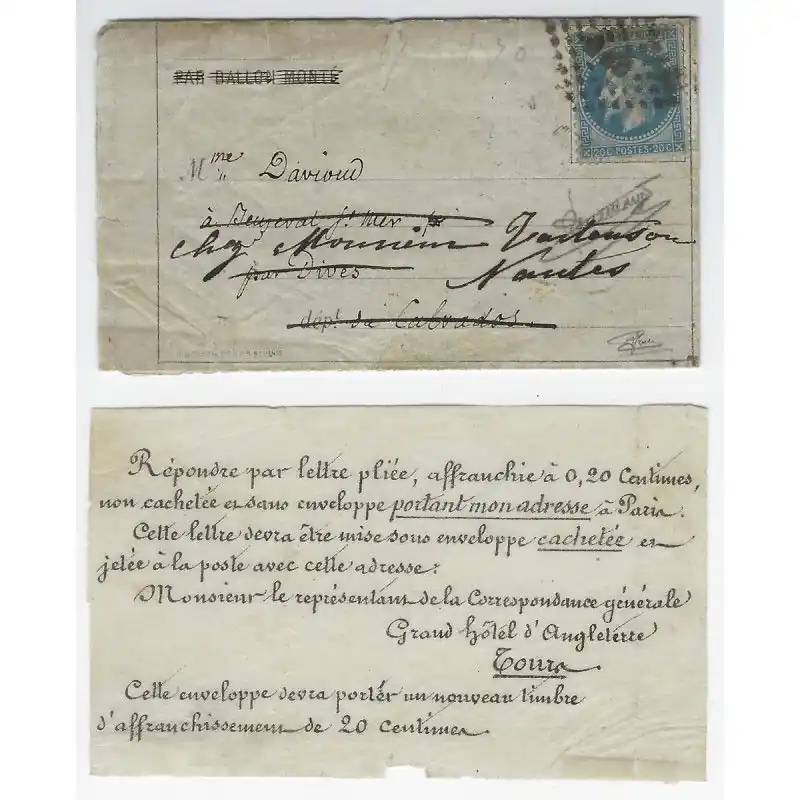 PAR BALLON MONTÉ
20 C. POSTES. 20 C.
Mme Davioud
à Beuzeval s/ Mer
chez Monsieur
par Dives
Nantes
dépt. du Calvados.
Répondre par lettre pliée, affranchie à 0,20 Centimes,
non cachetée et sans enveloppe portant mon adresse à Paris.
Cette lettre devra être mise sous enveloppe cachetée et
jetée à la poste avec cette adresse:
Monsieur le représentant de la Correspondance générale
Grand hôtel d'Angleterre
Tours.
Cette enveloppe devra porter un nouveau timbre
d'affranchissement de 20 centimes.